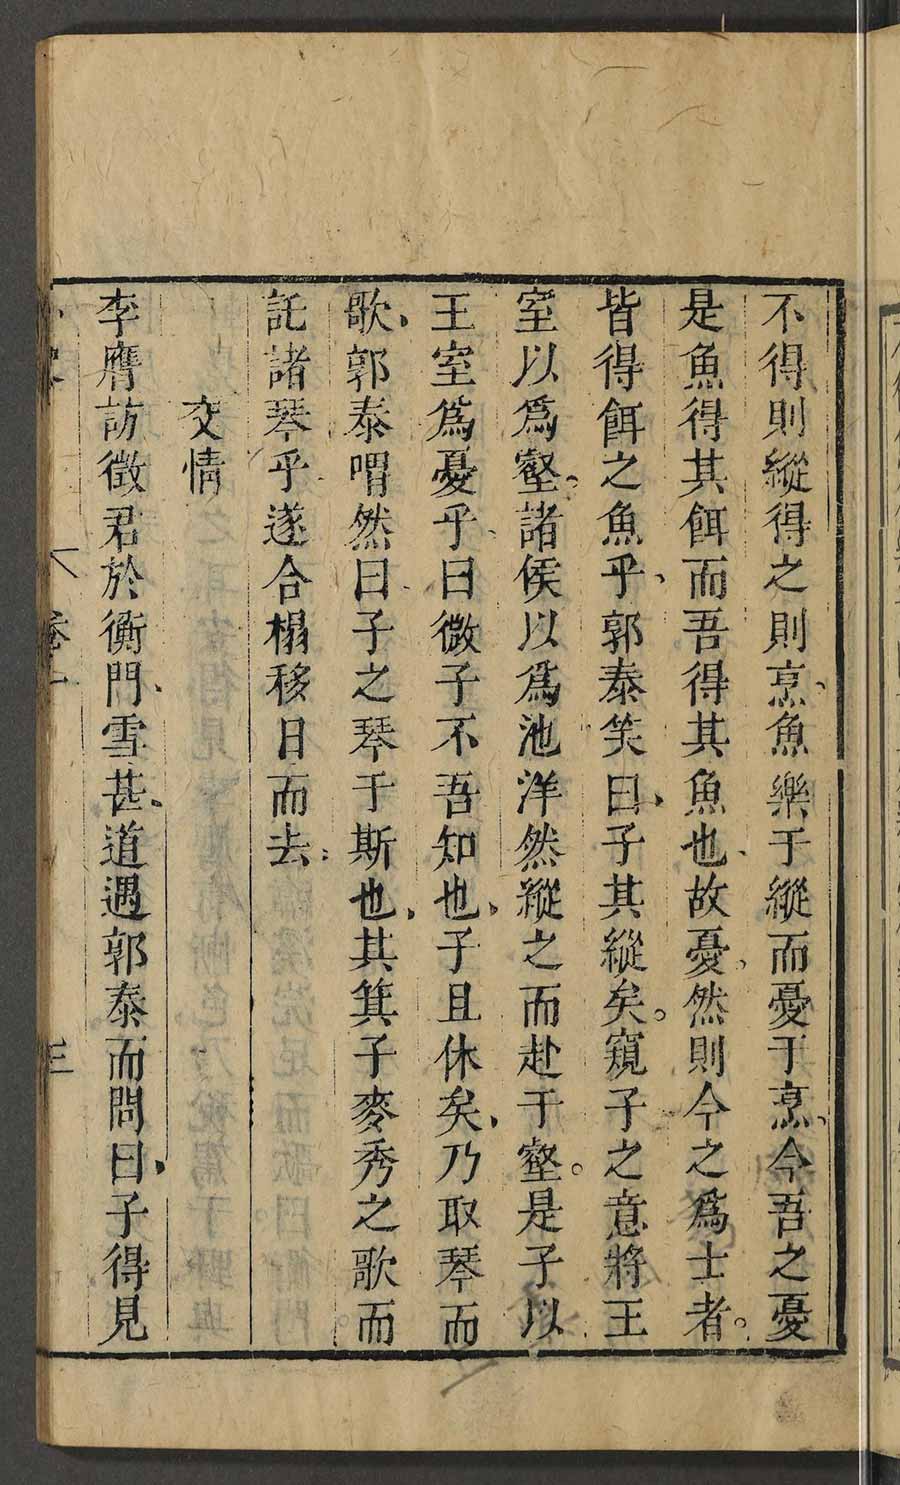 不得則縱得之則烹魚樂于縱而憂于烹今吾之憂
是魚得其餌而吾得其魚也故憂然則今之爲士者
皆得餌之魚乎郭泰笑曰子其縱矣窺子之意將王
室以爲壑諸侯以爲池洋然縱之而赴于壑是子以
王室爲憂乎曰微子不吾知也子且休矣乃取琴而
歌郭泰喟然曰子之琴于斯也其箕子麥秀之歌而
託諸琴乎遂合榻移日而去
交情
李膺訪徵君於衡門雪甚道遇郭泰而問曰子得見